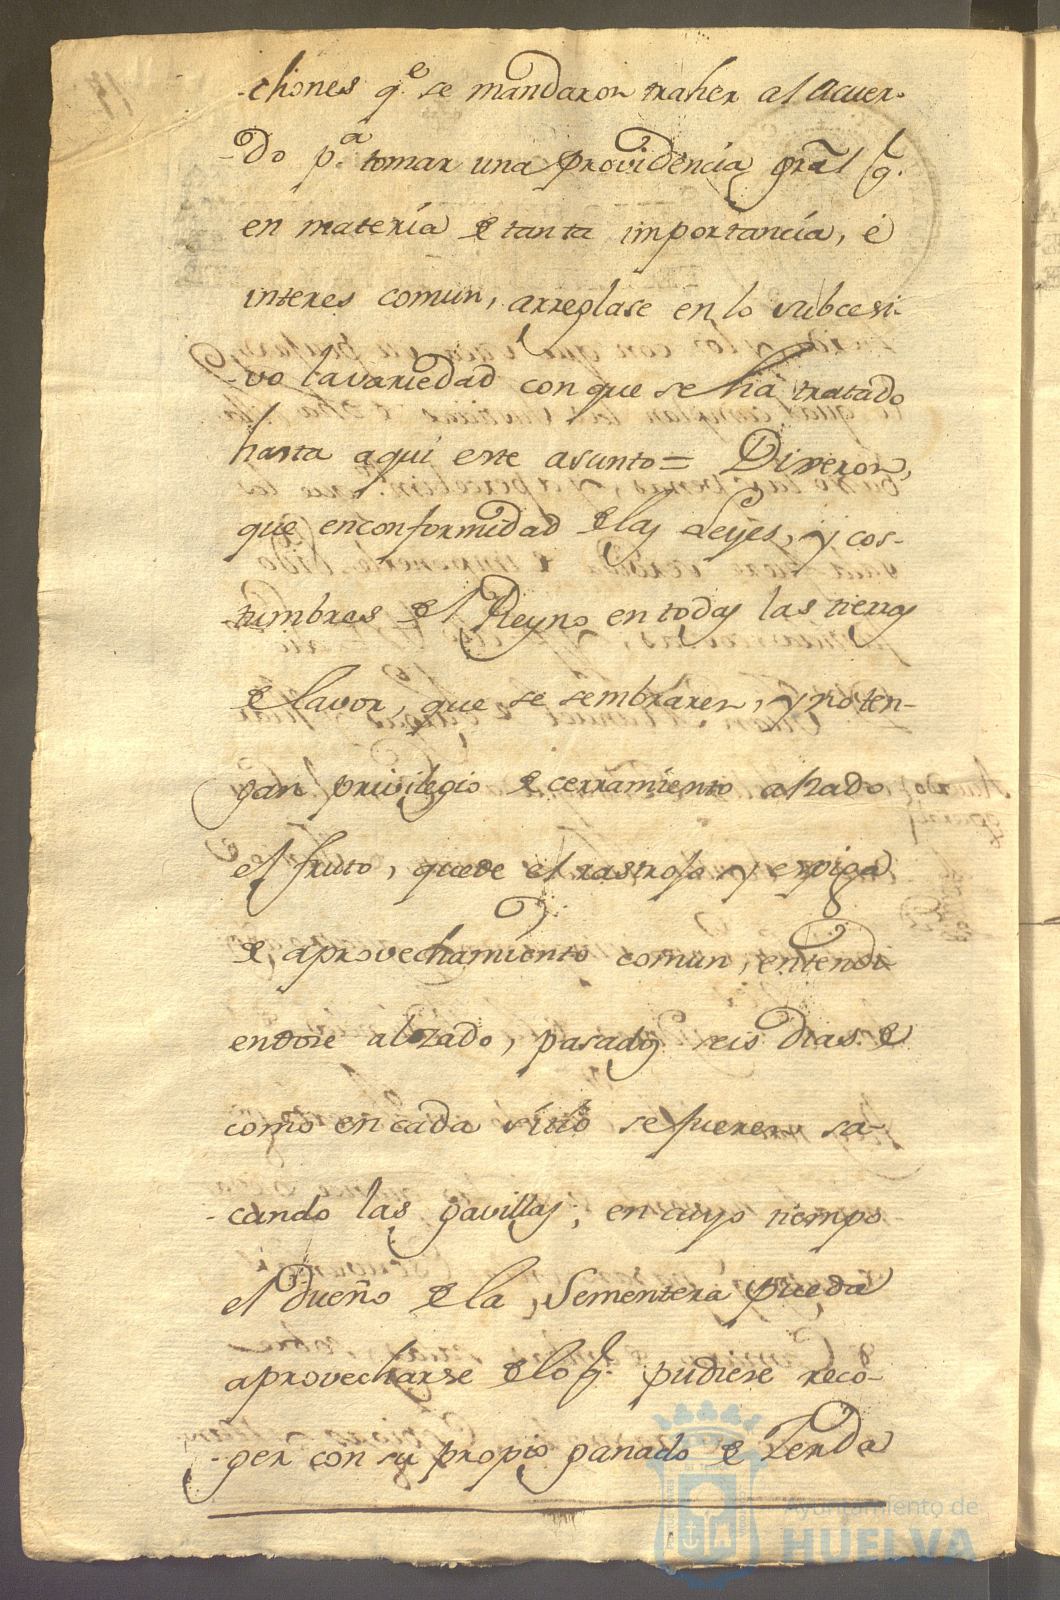 -chones q.e se mandaron traher al Acuer-
-do p.a tomar una providencia gral q.
en materia de tanta importancia, é
interes comun, arreglase en lo subcesi-
-vo la variedad con que se ha tratado
hasta aqui este asunto = Dixeron,
que en conformidad de las Leyes, y cos-
-tumbres del Reyno en todas las tierras
de lavor, que se sembraren, y no ten-
gan privilegio de cerramiento alzado
el fruto, quede el rastrojo y espiga
de aprovechamiento comun, entendi-
endose alzado, pasados seis dias de
como en cada sitio se fueren sa-
-cando las gavillas, en cuyo tiempo
el dueño de la Sementera pueda
aprovecharse de lo q. pudiese reco-
-ger con su propio ganado de Zerda
Ayuntamiento de
HUELVA